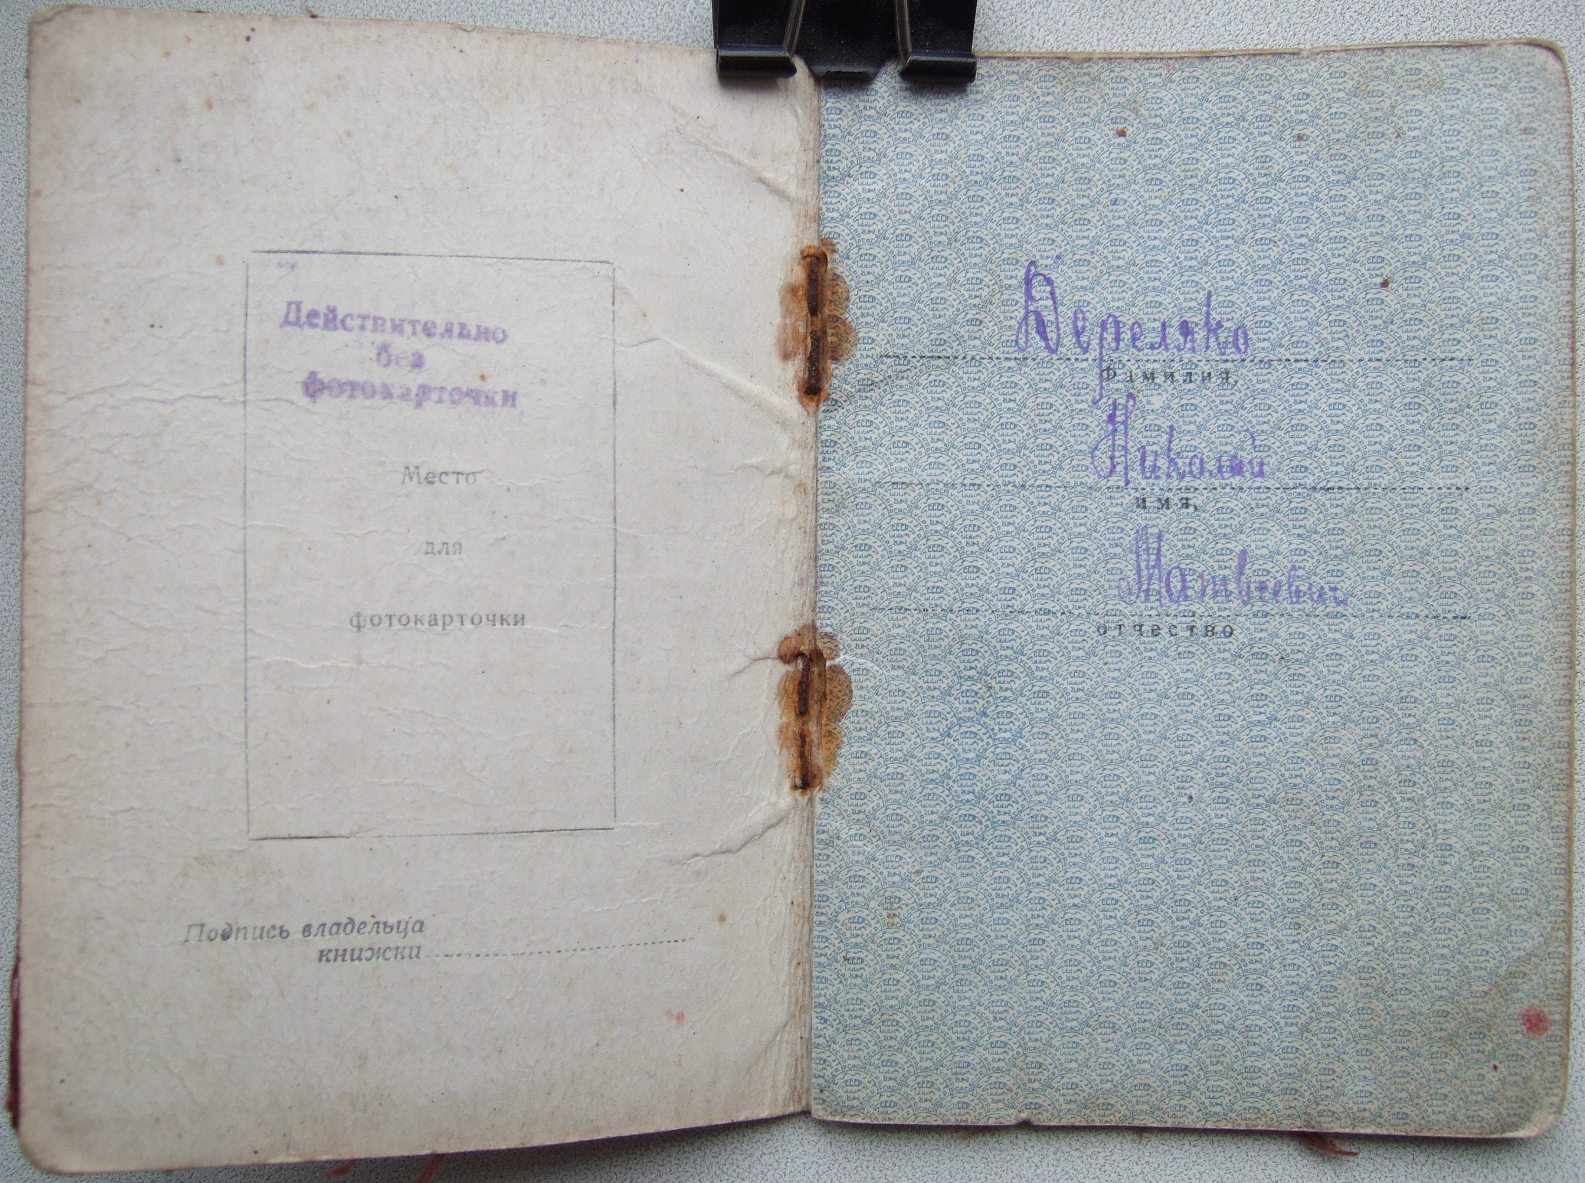 Действительно
без
фотокарточки
Место
для
фотокарточки
Подпись владельца
книжки
Дереляко
Фамилия,
Николай
имя,
Матвеевич
отчество